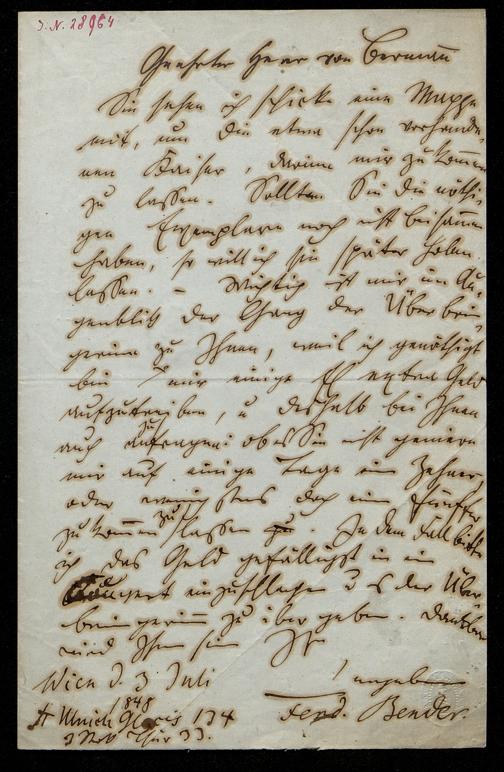 J. N. 28964
Geehrter Herr von Bermann
Sie sehen ich schicke eine Mappe
mit, um die etwa schon vorhande-
nen Kaiser, darinn mir zu kommen
zu lassen. Sollten Sie die nöthi-
gen Exemplare noch nicht beisammen
haben, so will ich sie später holen
lassen. – Wichtig ist mir im Au-
genblick der Gang der Überbrin-
gerinn zu Ihnen, weil ich genöthigt
bin mir einige extra Geld
aufzutreiben, u deshalb bei Ihnen
auch anfragen: ob es Sie nicht geniere
mir auf einige Tage ein Zehner,
oder wenigstens doch ein Fünfer
zu kommen zu lassen. In dem Fall bitte
ich das Geld gefälligst in ein
Couvert einzuschlagen u es der Über-
bringerinn zu übergeben. Dankbar
wird Ihnen sein Ihr
Wien d. 3 Juli
848
ergebener
Ferd. Bender.
Glacis 134
Thür 33.